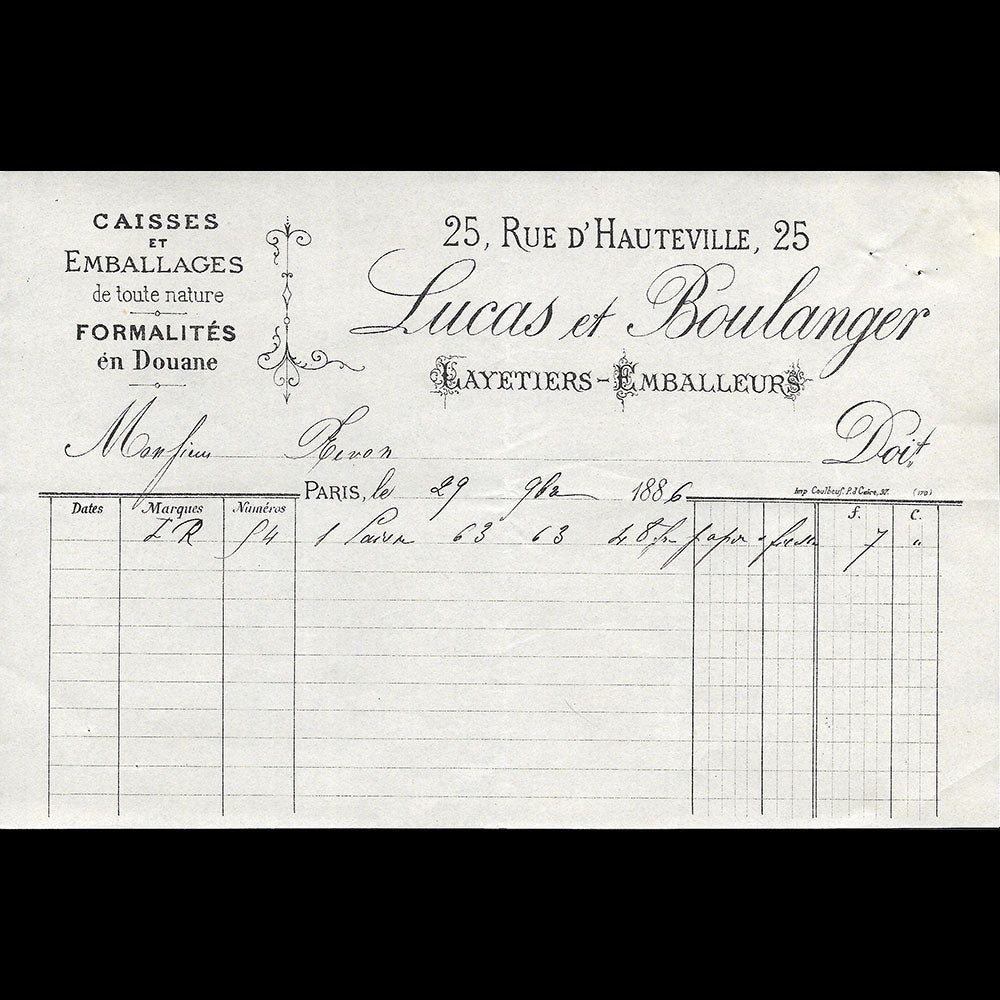 CAISSES
ET
EMBALLAGES
de toute nature
FORMALITÉS
én Douane
25, RUE D'HAUTEVILLE, 25
Lucas et Boulanger
LAYETIERS-EMBALLEURS
Monsieur Revon Doit
PARIS, le 29 9bre 1886
Imp Coulbeuf. P. d Caire, 37. (170)
Dates Marques Numéros f. c.
R 54 1 Caisse 63 63 48 papier 7 "